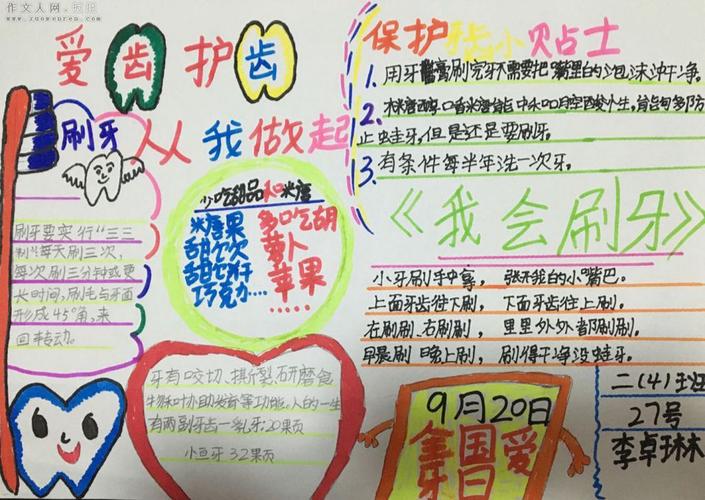 作文人网
www.zuowenren.com
爱齿护齿
从我做起
刷牙
刷牙要实行“三三
制”每天刷三次，
每次刷三分钟或更
长时间，刷毛与牙面
形成45°角，来
回转动。
少吃甜品和米糖
米糖果
甜饼干
巧克力....
多吃胡
萝卜
苹果
......
牙有咬切、撕裂、研磨食
物、协助发音等功能。人的一生
有两副牙齿一乳牙20果页
32果页
保护牙齿小贴士
1. 用牙膏刷完牙不需要把嘴里的泡沫冲干净。
2.
止蛀牙，但是还是要刷牙。
3. 有条件每半年洗一次牙。
《我会刷牙》
小牙刷手中拿， 张开我的小嘴巴。
上面牙齿往下刷， 下面牙齿往上刷。
右刷刷、右刷刷， 里里外外都刷刷。
早晨刷 晚上刷， 刷得干净没蛀牙。
9月20日
全国爱
牙日
二(4)班
27号
李卓琳